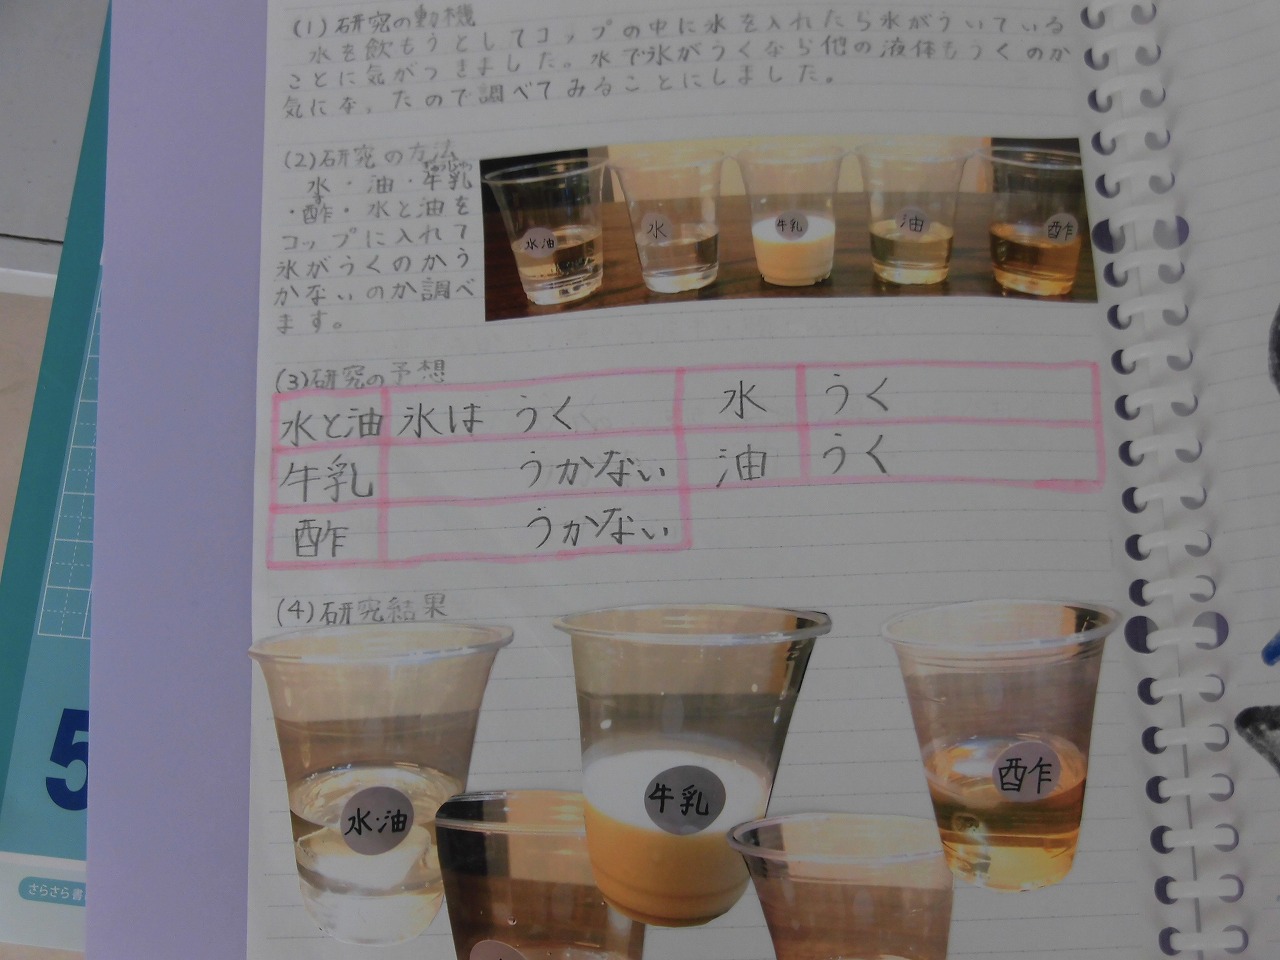 (1)研究の動機
水を飲もうとしてコップの中に氷を入れたら氷がういている
ことに気がつきました。水で氷がうくなら他の液体もうくのか
気になったので調べてみることにしました。
(2)研究の方法
水・油・牛乳
・酢・水と油を
コップに入れて
氷がうくのかう
かないのか調べ
ます。
水油
水
牛乳
油
酢
(3)研究の予想
水と油 氷は うく 水 うく
牛乳 うかない 油 うく
酢 うかない
(4)研究結果
水・油
牛乳
酢
5
さらさら書